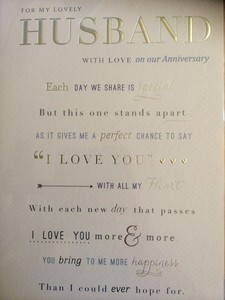 FOR MY LOVELY
HUSBAND
WITH LOVE on our Anniversary
Each DAY WE SHARE IS special
But this one stands apart
AS IT GIVES ME a perfect CHANCE TO SAY
"I LOVE YOU"
WITH ALL MY Heart
With each new day that passes
I LOVE YOU more & more
YOU bring TO ME MORE happiness
Than I could ever hope for.